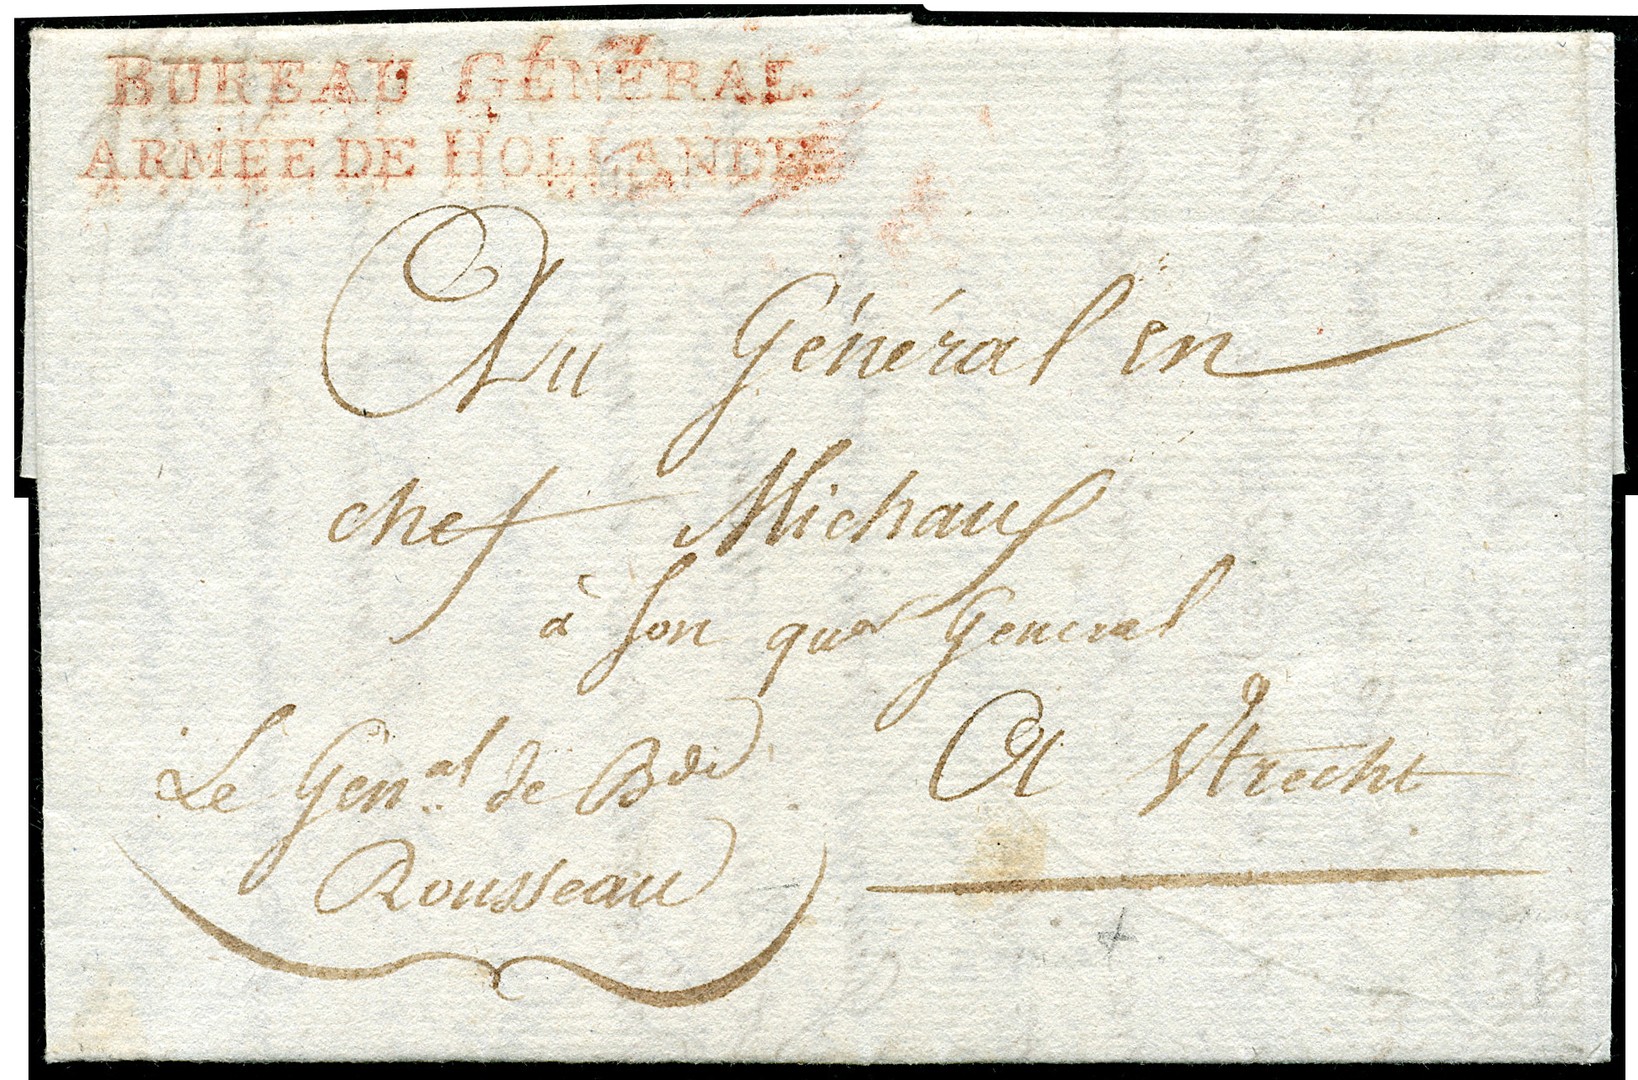 BUREAU GÉNÉRAL.
ARMÉE DE HOLLANDE
Au Général en
chef Michaud
à son quer General
A Utrecht
Le Genal de Bde
Rousseau